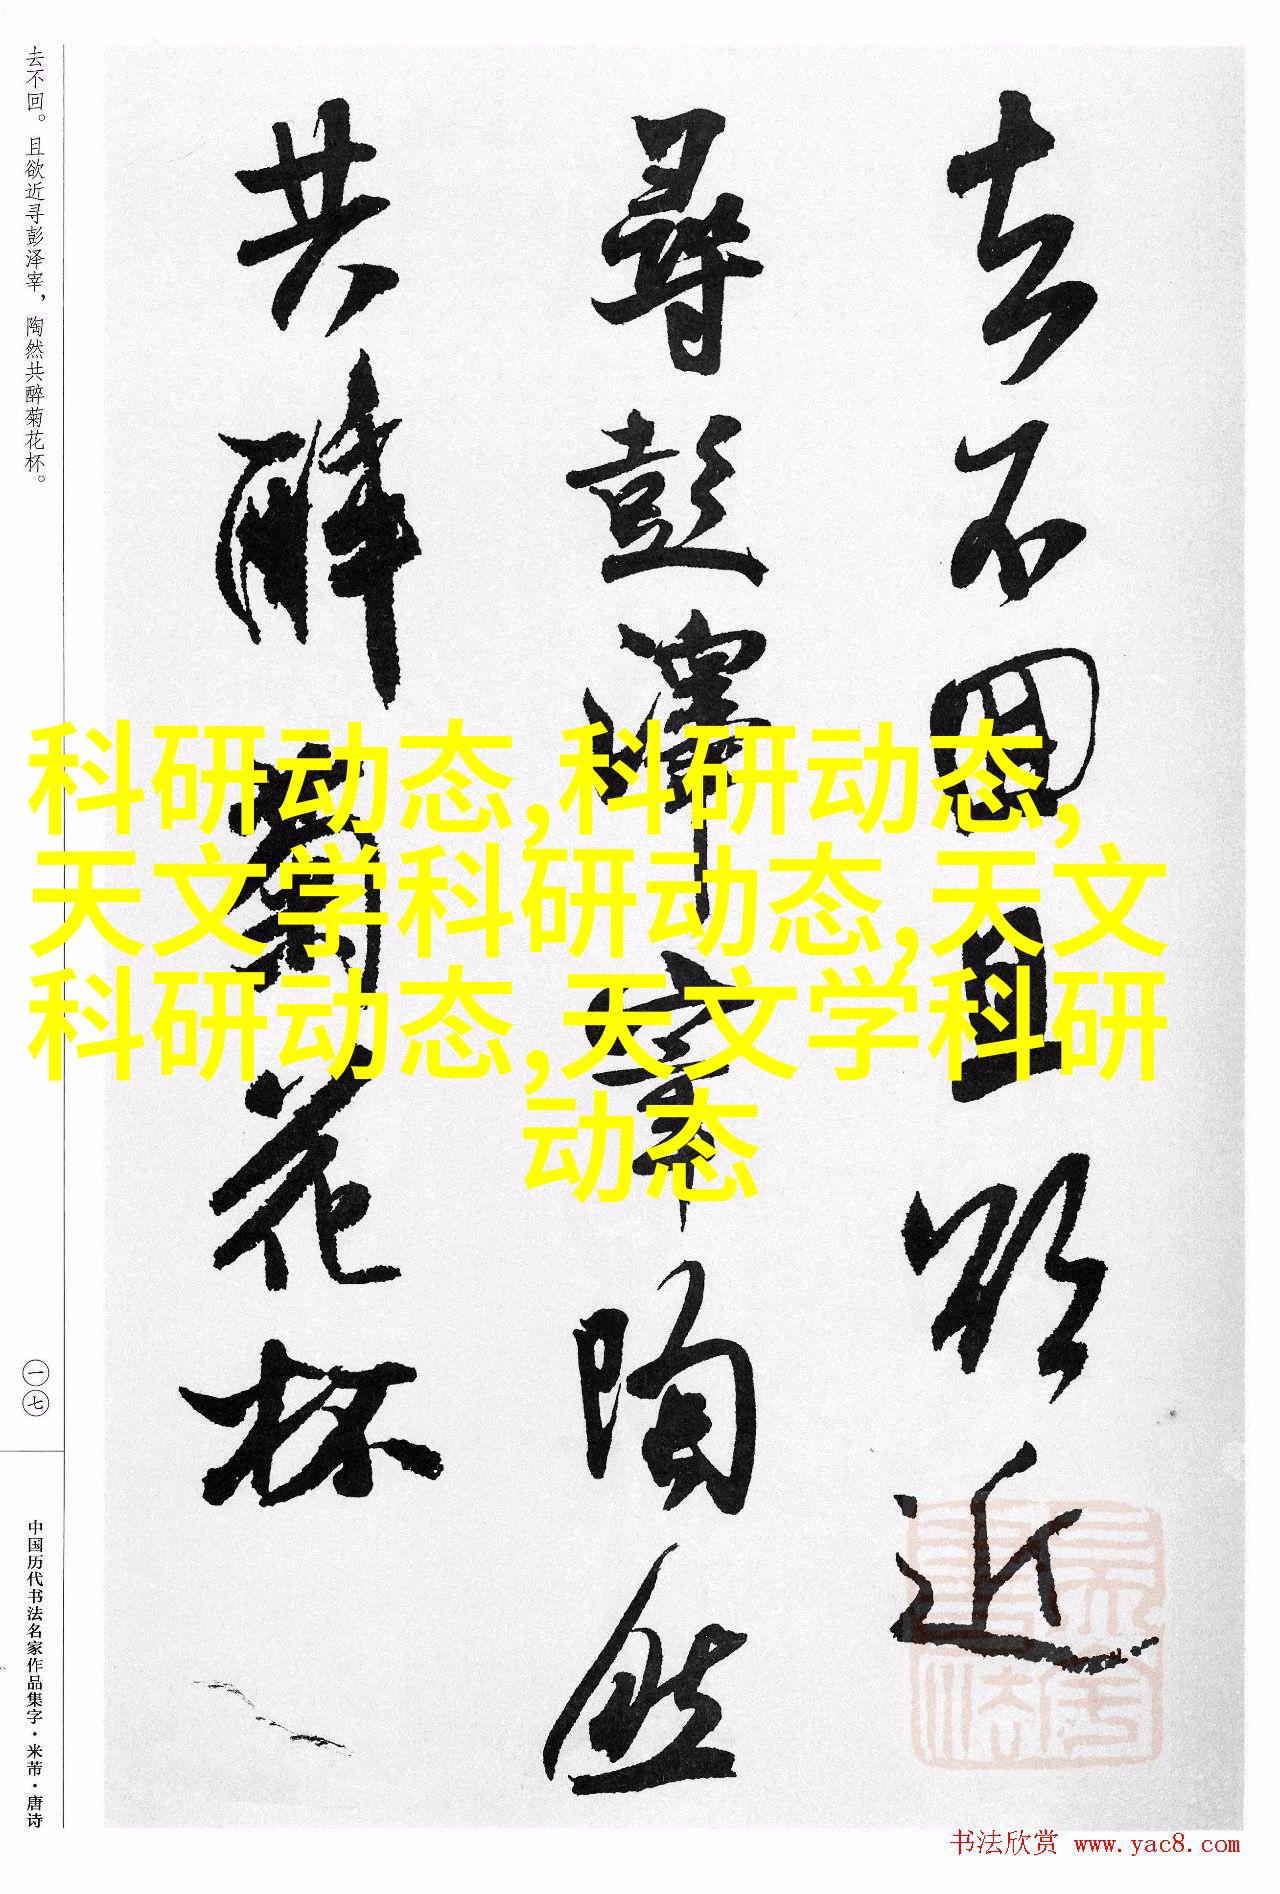 去不回且欲近
尋彭澤宰陶然
共醉菊花杯
去不回。且欲近寻彭泽宰，陶然共醉菊花杯。
一七
中国历代书法名家作品集字·米芾·唐诗
科研动态,科研动态,
天文学科研动态,天文
科研动态,天文学科研
动态
书法欣赏 www.yac8.com